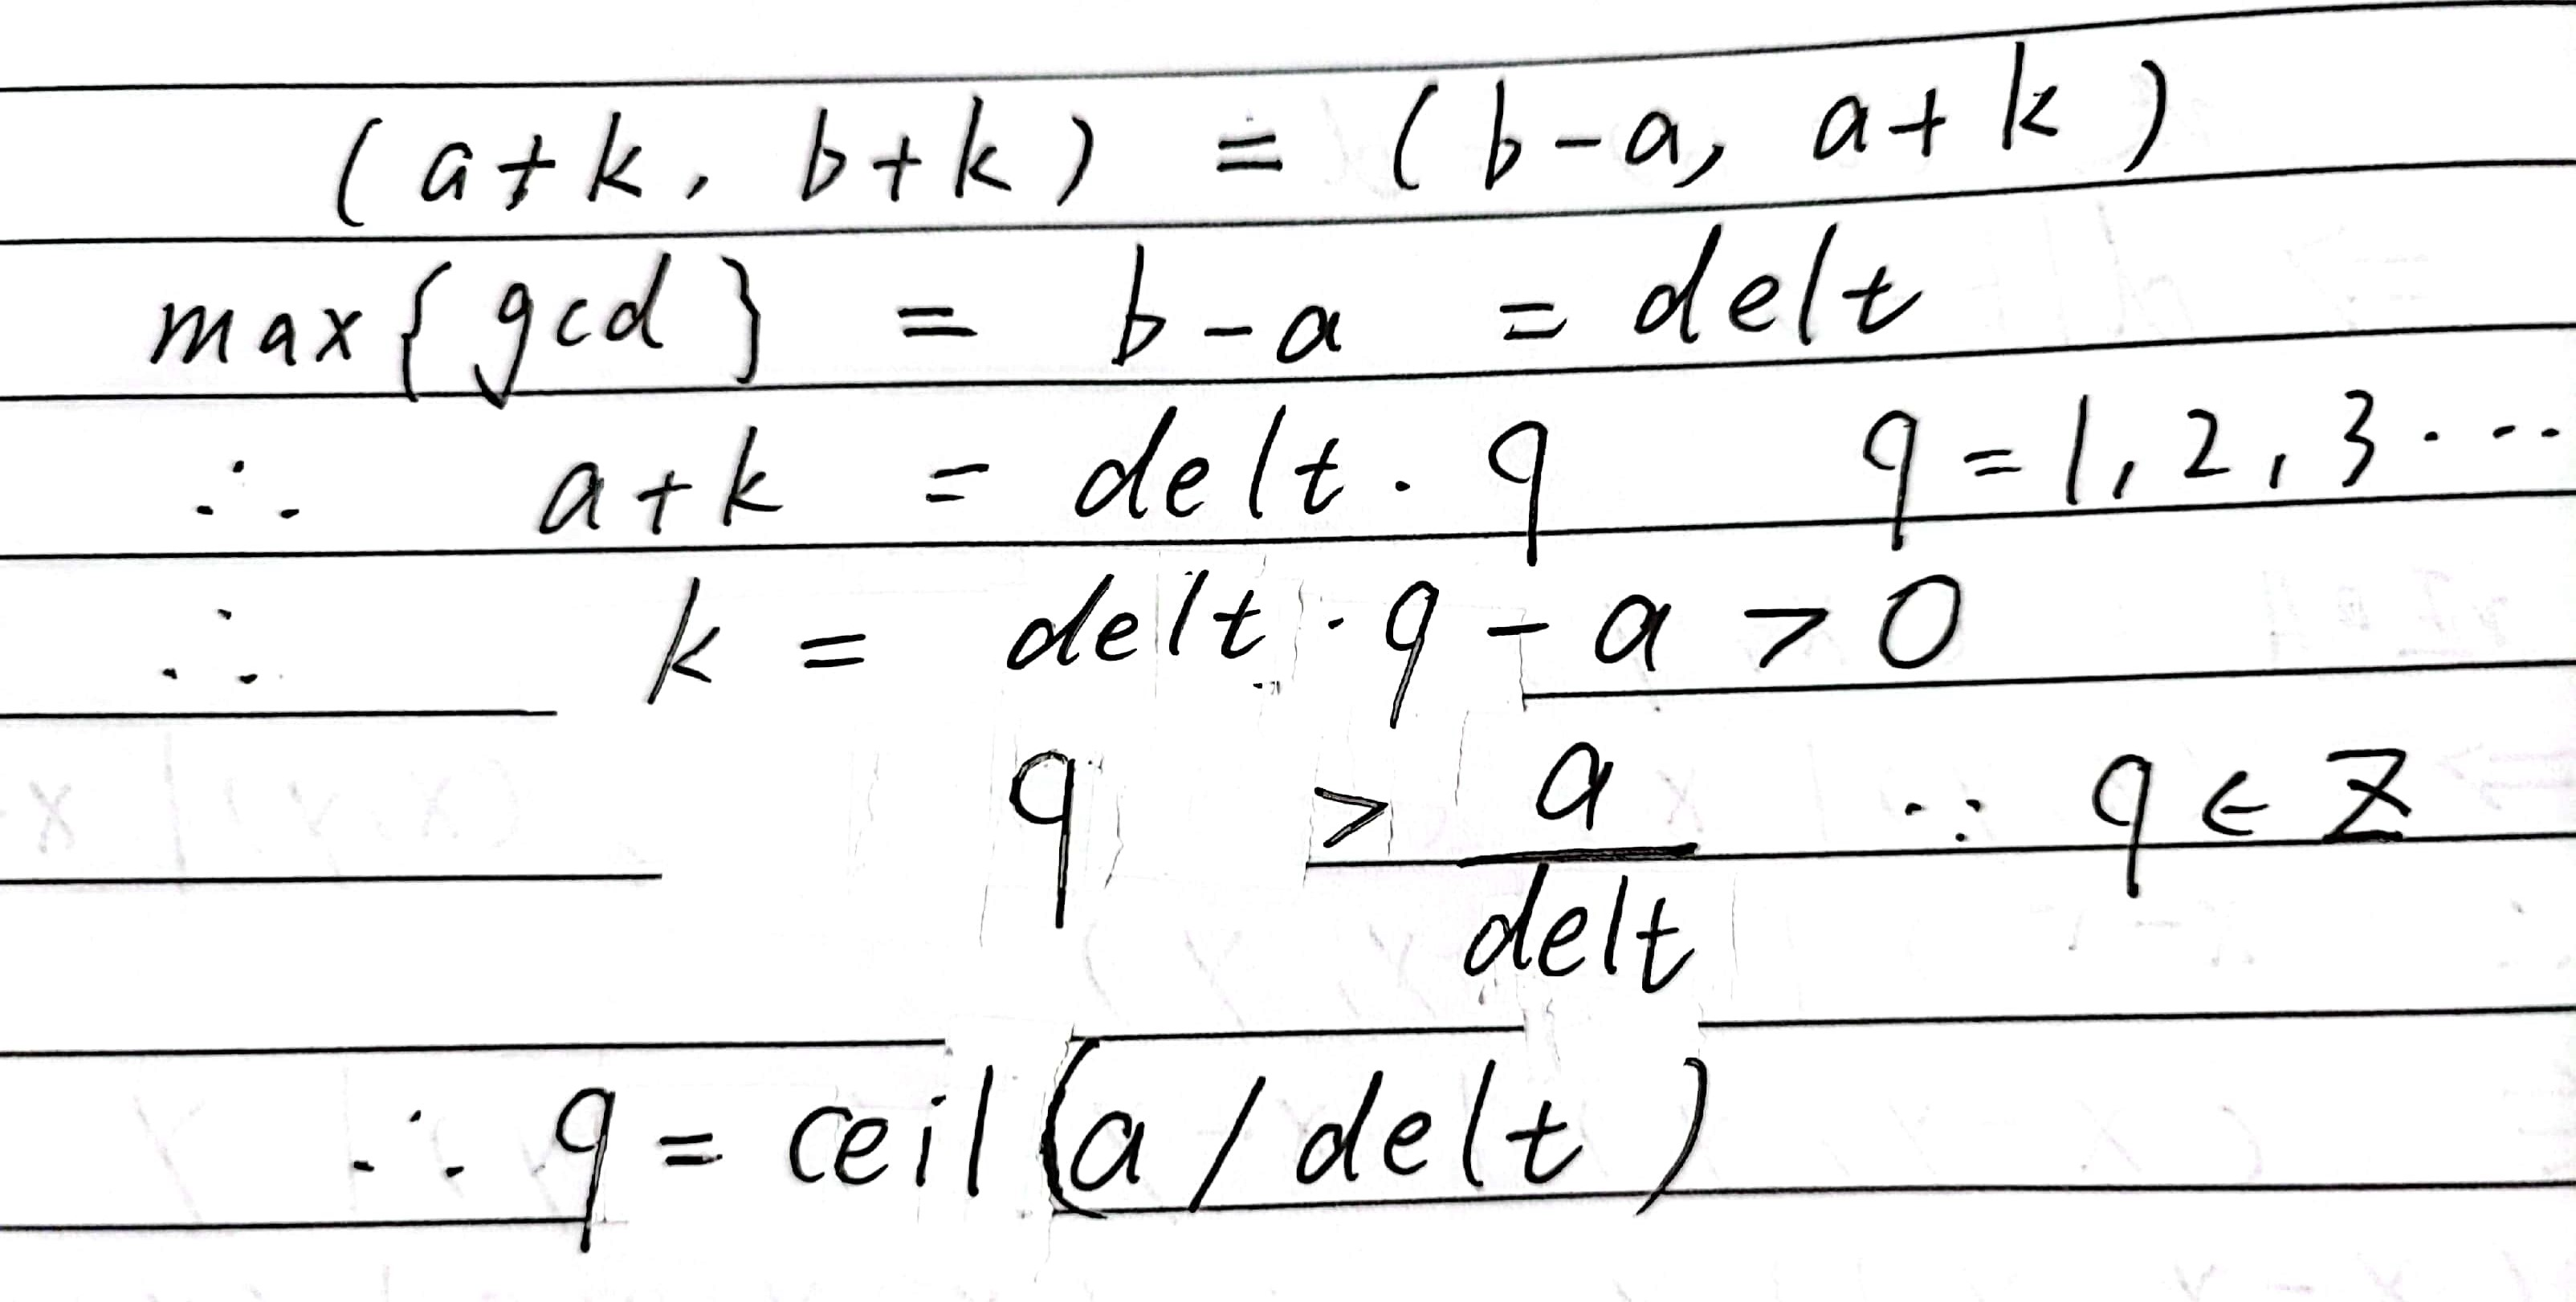 (a+k, b+k) = (b-a, a+k)
max{gcd} = b-a = delt
∴ a+k = delt·q q=1,2,3···
∴ k = delt·q-a>0
q > a/delt ∵ q∈Z
∴ q = ceil(a/delt)